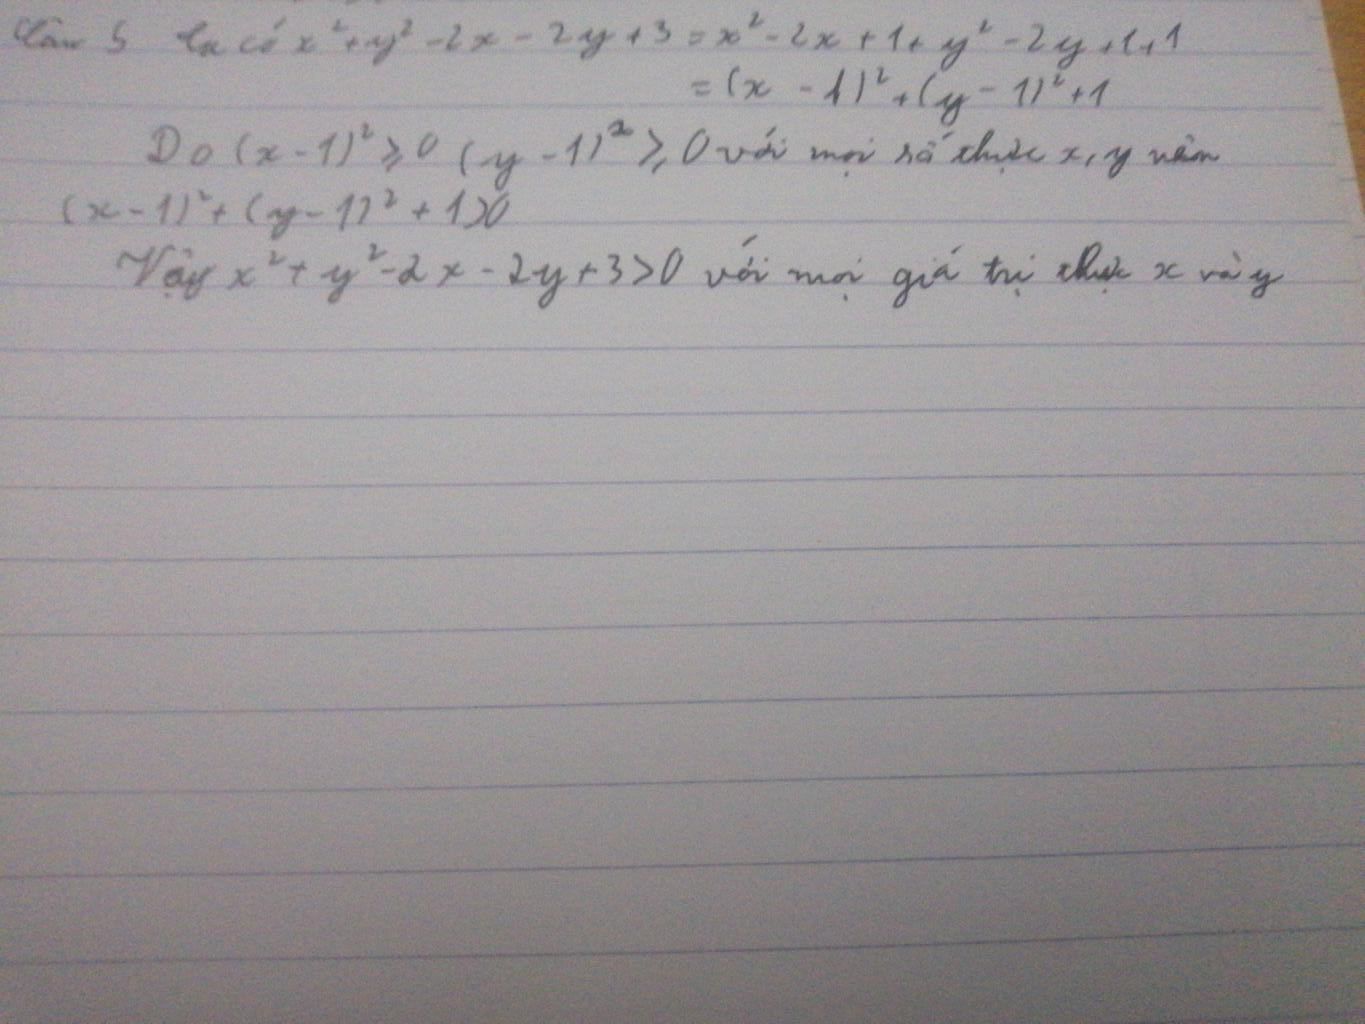 Câu 5 Ta có x² + y² - 2x - 2y + 3 = x² - 2x + 1 + y² - 2y + 1 + 1
= (x - 1)² + (y - 1)² + 1
Do (x - 1)² ≥ 0 (y - 1)² ≥ 0 với mọi số thực x, y nên
(x - 1)² + (y - 1)² + 1 > 0
Vậy x² + y² - 2x - 2y + 3 > 0 với mọi giá trị thực x và y